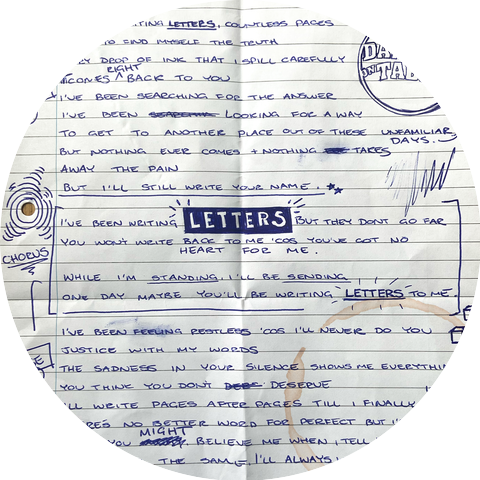 TING LETTERS, COUNTLESS PAGES
TO FIND MYSELF THE TRUTH
DROP OF INK THAT I SPILL CAREFULLY
COMES RIGHT BACK TO YOU
I'VE BEEN SEARCHING FOR THE ANSWER
I'VE BEEN LOOKING FOR A WAY
TO GET TO ANOTHER PLACE OUT OF THESE UNFAMILIAR
DAYS.
BUT NOTHING EVER COMES + NOTHING TAKES
AWAY THE PAIN
BUT I'LL STILL WRITE YOUR NAME.
I'VE BEEN WRITING LETTERS BUT THEY DONT GO FAR
YOU WON'T WRITE BACK TO ME 'COS YOU'VE GOT NO
HEART FOR ME.
CHORUS
WHILE I'M STANDING, I'LL BE SENDING
ONE DAY MAYBE YOU'LL BE WRITING LETTERS TO ME
I'VE BEEN FEELING RESTLESS 'COS I'LL NEVER DO YOU
JUSTICE WITH MY WORDS
THE SADNESS IN YOUR SILENCE SHOWS ME EVERYTHIN
YOU THINK YOU DON'T DESERVE
LL WRITE PAGES AFTER PAGES TILL I FINALLY
RE'S NO BETTER WORD FOR PERFECT BUT I'
YOU MIGHT BELIEVE ME WHEN I TELL
THE SAME, I'LL ALWAYS